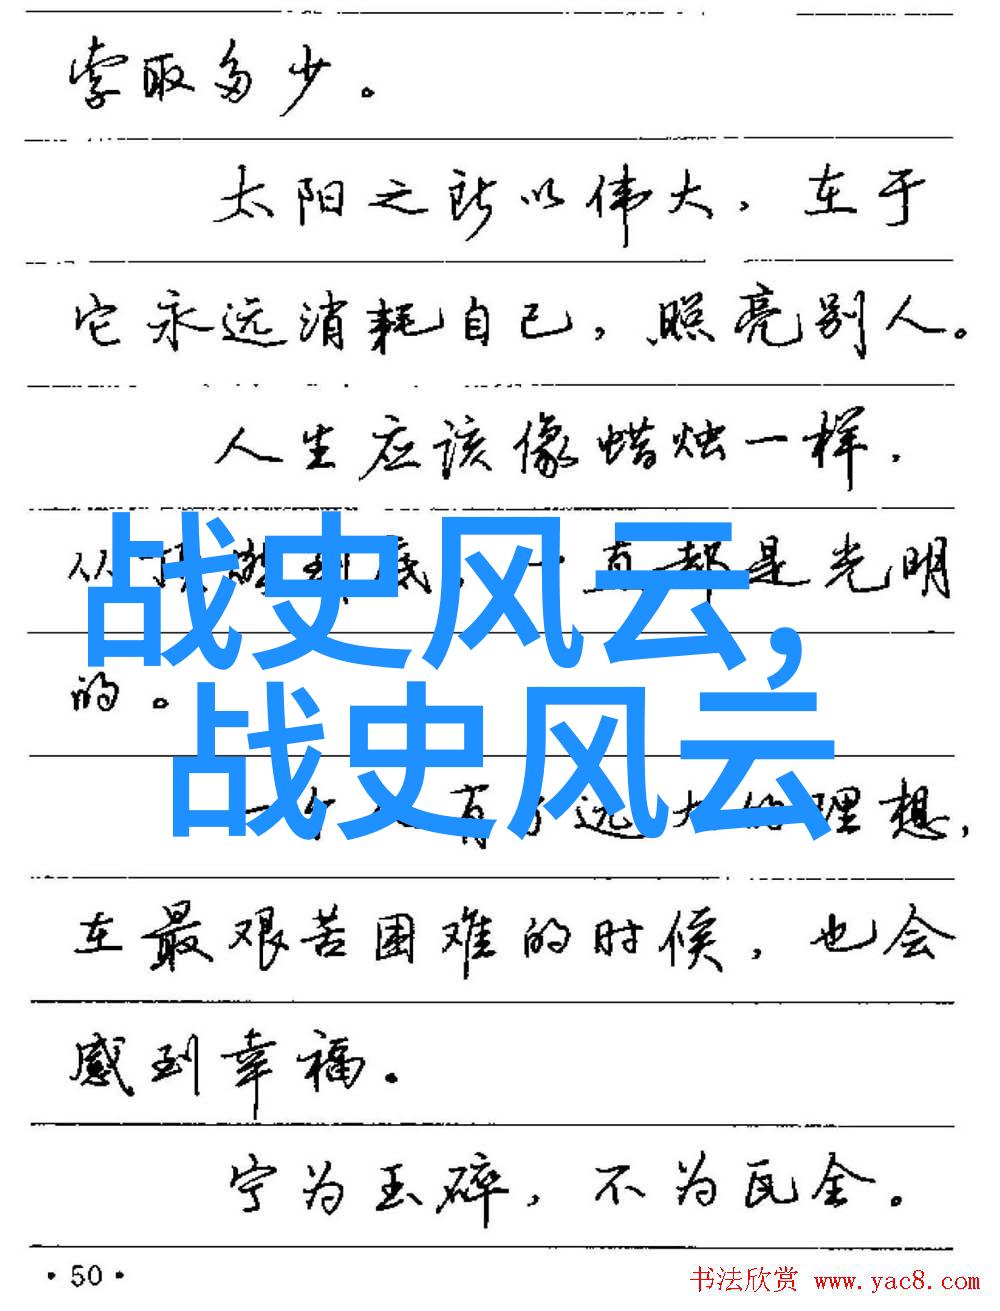 索取多少。
太阳之所以伟大，在于
它永远消耗自己，照亮别人。
人生应该像蜡烛一样，
从顶燃到底，一直都是光明
战史风云,
的。
战史风云
一个人有了远大的理想，
在最艰苦困难的时候，也会
感到幸福。
宁为玉碎，不为瓦全。
·50·
书法欣赏 www.yac8.com